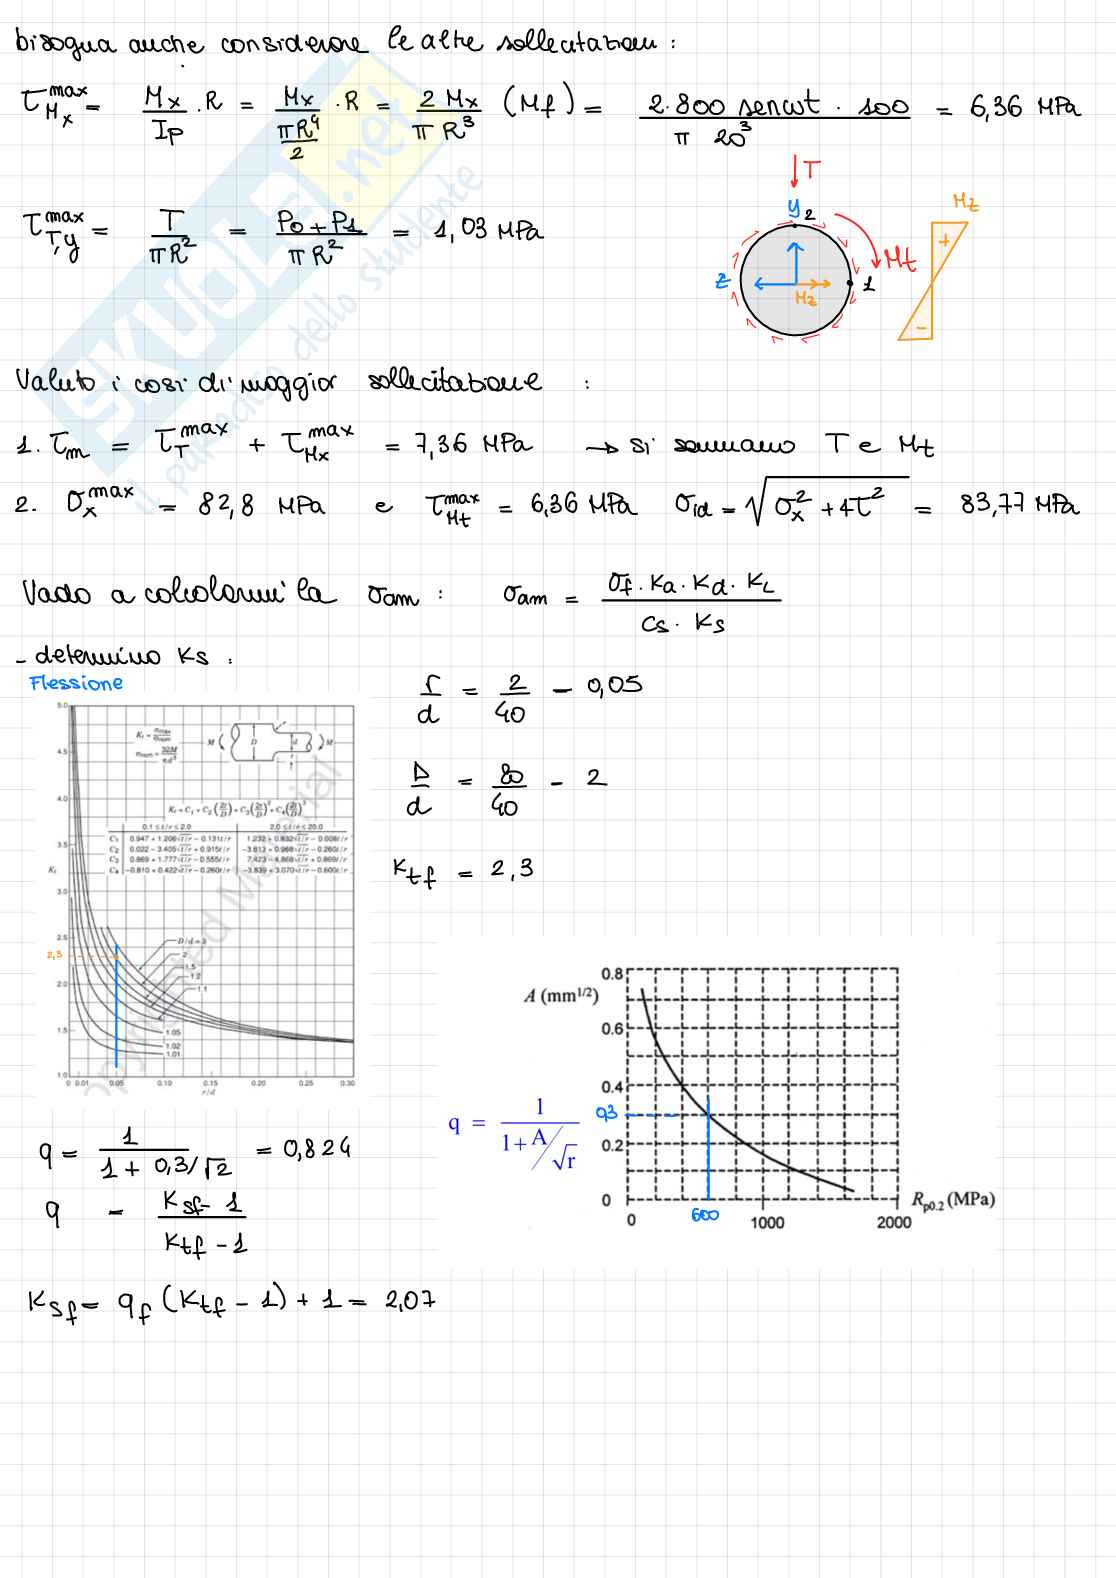 bisogna anche considerare le altre sollecitazioni :
τ_Mx^max = Mx/Ip · R = Mx/(πR⁴/2) · R = 2 Mx/(π R³) (Mf) = 2·800 senωt · 100/(π 20³) = 6,36 MPa
↓T
y 2
Mz
+
Mt
τ_T,y^max = T/(πR²) = (P0 + P1)/(π R²) = 1,03 MPa
z
Mz
1
-
SKUOLA.net
il paradiso dello studente
Valuto i casi di maggior sollecitazione :
1. τm = τ_T^max + τ_Mx^max = 7,36 MPa → si sommano T e Mt
2. σ_x^max = 82,8 MPa e τ_Mt^max = 6,36 MPa σid = √(σx² + 4τ²) = 83,77 MPa
Vado a calcolarmi la σam : σam = (σf · Ka · Kd · KL)/(Cs · Ks)
- determino Ks :
Flessione
r/d = 2/40 - 0,05
D/d = 80/40 - 2
Ktf = 2,3
5.0
4.5
4.0
3.5
Kt
3.0
2.5
2,3
2.0
1.5
1.0
Kt = σmax/σnom
σnom = 32M/πd³
M D d M
Kt = C1 + C2(2t/D) + C3(2t/D)² + C4(2t/D)³
0.1 ≤ t/r ≤ 2.0 2.0 ≤ t/r ≤ 20.0
C1 0.947 + 1.206√t/r − 0.131t/r 1.232 + 0.832√t/r − 0.008t/r
C2 0.022 − 3.405√t/r + 0.915t/r −3.813 + 0.968√t/r − 0.260t/r
C3 0.869 + 1.777√t/r − 0.555t/r 7.423 − 4.868√t/r + 0.869t/r
C4 −0.810 + 0.422√t/r − 0.260t/r −3.839 + 3.070√t/r − 0.600t/r
D/d = 3
2
1.5
1.2
1.1
1.05
1.02
1.01
0 0.01 0.05 0.10 0.15 0.20 0.25 0.30
r/d
A (mm^1/2)
0.8
0.6
0.4
0,3
0.2
0
0 600 1000 2000
Rp0.2 (MPa)
q = 1/(1+A/√r)
q = 1/(1 + 0,3/√2) = 0,824
q - (Ksf - 1)/(Ktf - 1)
Ksf = qf (Ktf - 1) + 1 = 2,07